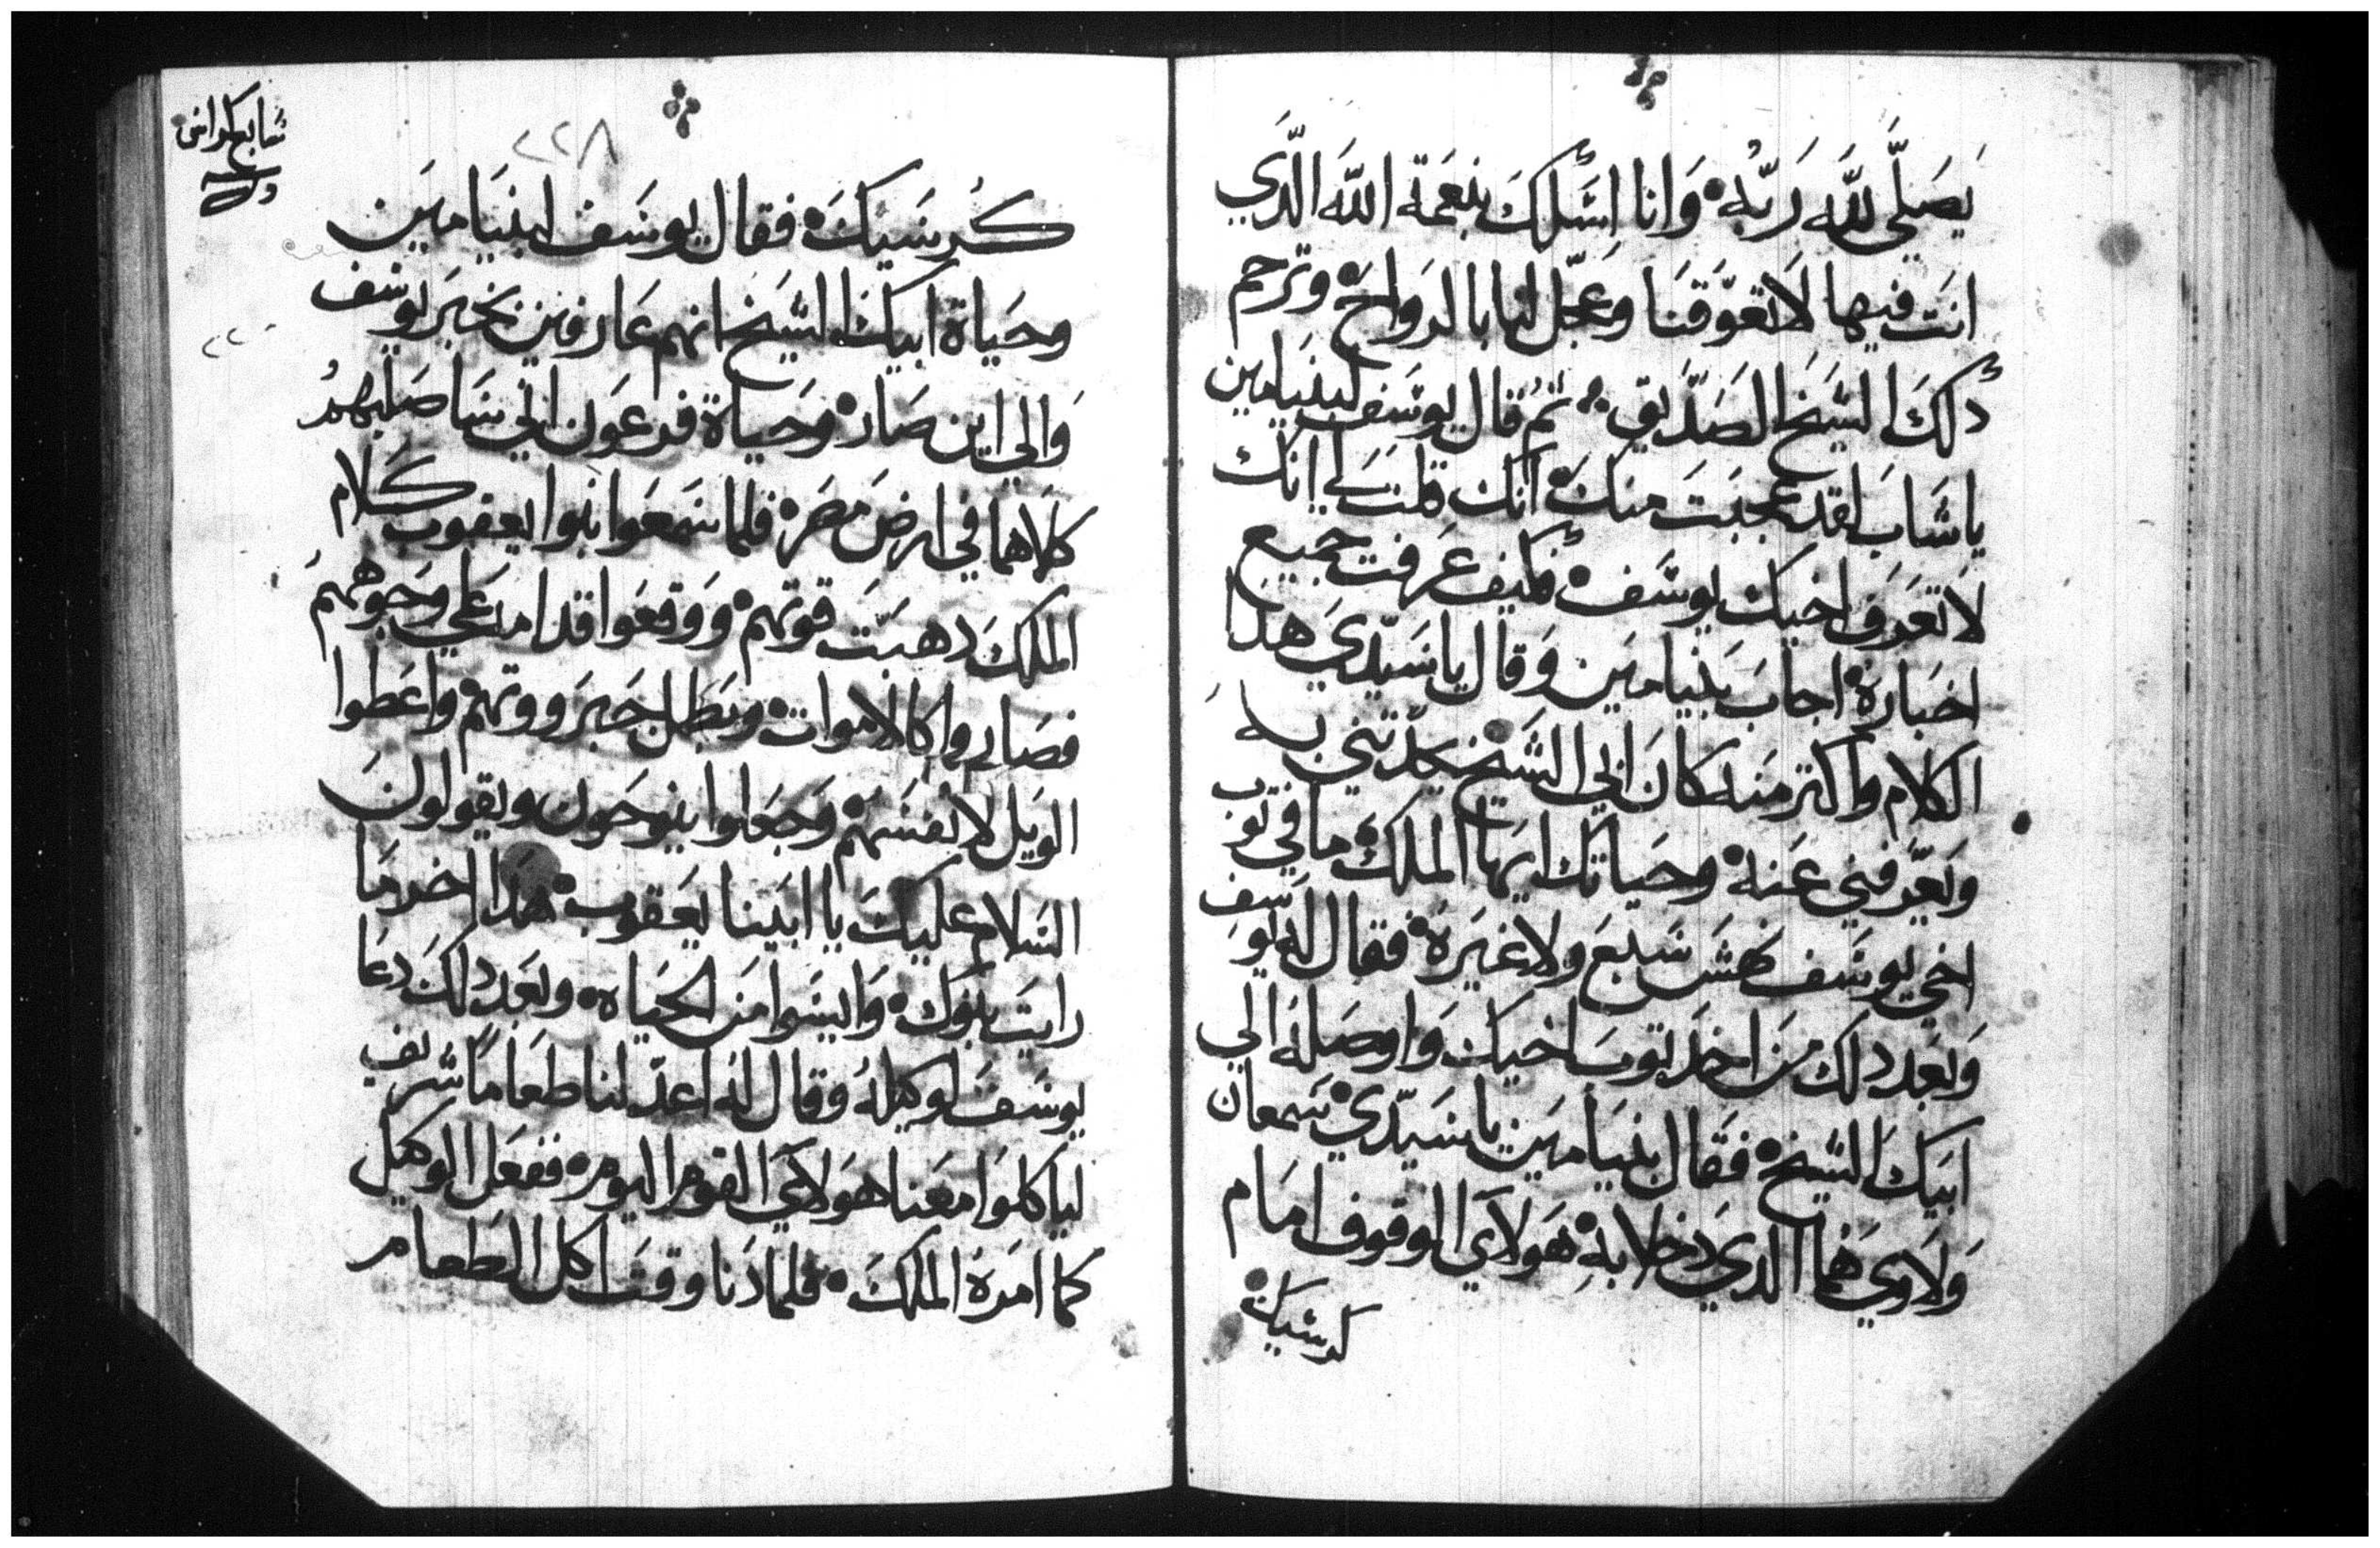 يصلي لله ربه وانا اسلك بنعمة الله الدي
انت فيها لا تعوقنا وعجل لنا بالرواح وترحم
دلك الشيخ الصديق ثم قال يوسف لبنيامين
ياشاب لقد عجبت منك انك قلت لي انك
لا تعرف اخيك يوسف فكيف عرفت جميع
اخباره اجاب بنيامين وقال ياسيدي هدا
الكلام واكتر منه كان ابي الشيخ يحدتني به
ويعرفني عنه وحياتك ايها الملك ما في توب
اخي يوسف نهش سبع ولا غيره فقال له يوسف
وبعد دلك من اخد توب اخيك واوصله الي
ابيك الشيخ فقال بنيامين ياسيدي سمعان
ولاوي هما الدي دخلا به هولاي الوقوف امام
كرسيك
سابع كراس
٢٢٨
كرسيك فقال يوسف لبنيامين
وحياة ابيك الشيخ انهم عارفين بخبر يوسف
والي اين صار وحياة فرعون اني ساصلبهم
كلاهما في ارض مصر فلما سمعوا بنوا يعقوب كلام
الملك دهبت قوتهم ووقعوا قدامه علي وجوههم
فصاروا كالاموات وبطل جبروتهم واعطوا
الويل لانفسهم وجعلوا ينوحون ويقولون
السلام عليك يا ابينا يعقوب هدا اخر ما
رايت بنوك وايسوا من الحياه وبعد دلك دعا
يوسف لوكيله وقال له اعد لنا طعاما شريف
لياكلوا معنا هولاي القوم اليوم ففعل الوكيل
كما امره الملك فلما دنا وقت اكل الطعام